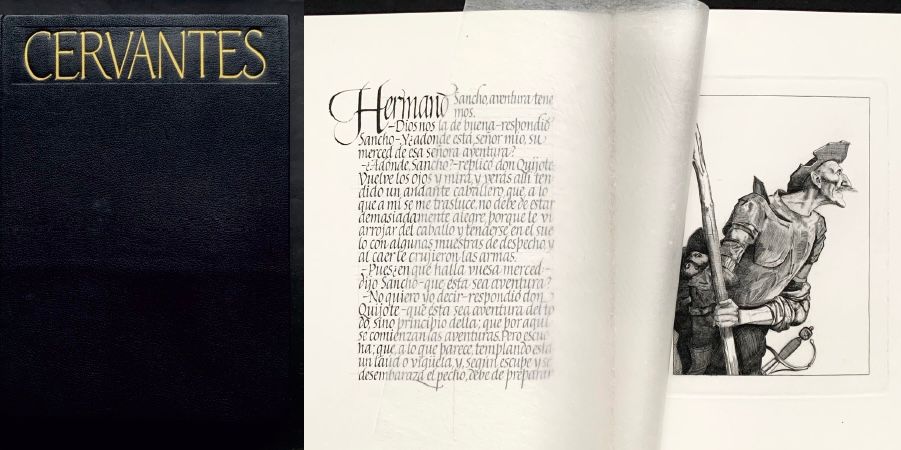 CERVANTES
Hermano Sancho, aventura tene
mos.
-Dios nos la dé buena-respondió
Sancho-Y ¿adonde está, señor mío, su
merced de esa señora aventura?
-¿Adónde, Sancho?-replicó don Quijote
Vuelve los ojos y mira, y verás allí ten
dido un andante caballero, que, a lo
que a mí se me trasluce, no debe de estar
demasiadamente alegre, porque le vi
arrojar del caballo y tenderse en el sue
lo con algunas muestras de despecho, y
al caer le crujieron las armas.
-Pues ¿en qué halla vuesa merced-
dijo Sancho-que ésta sea aventura?
-No quiero yo decir-respondió don
Quijote-que ésta sea aventura del to
do, sino principio della; que por aquí
se comienzan las aventuras. Pero escu
ha; que, a lo que parece, templando está
un laúd o vigüela, y, según escupe y se
desembaraza el pecho, debe de preparar